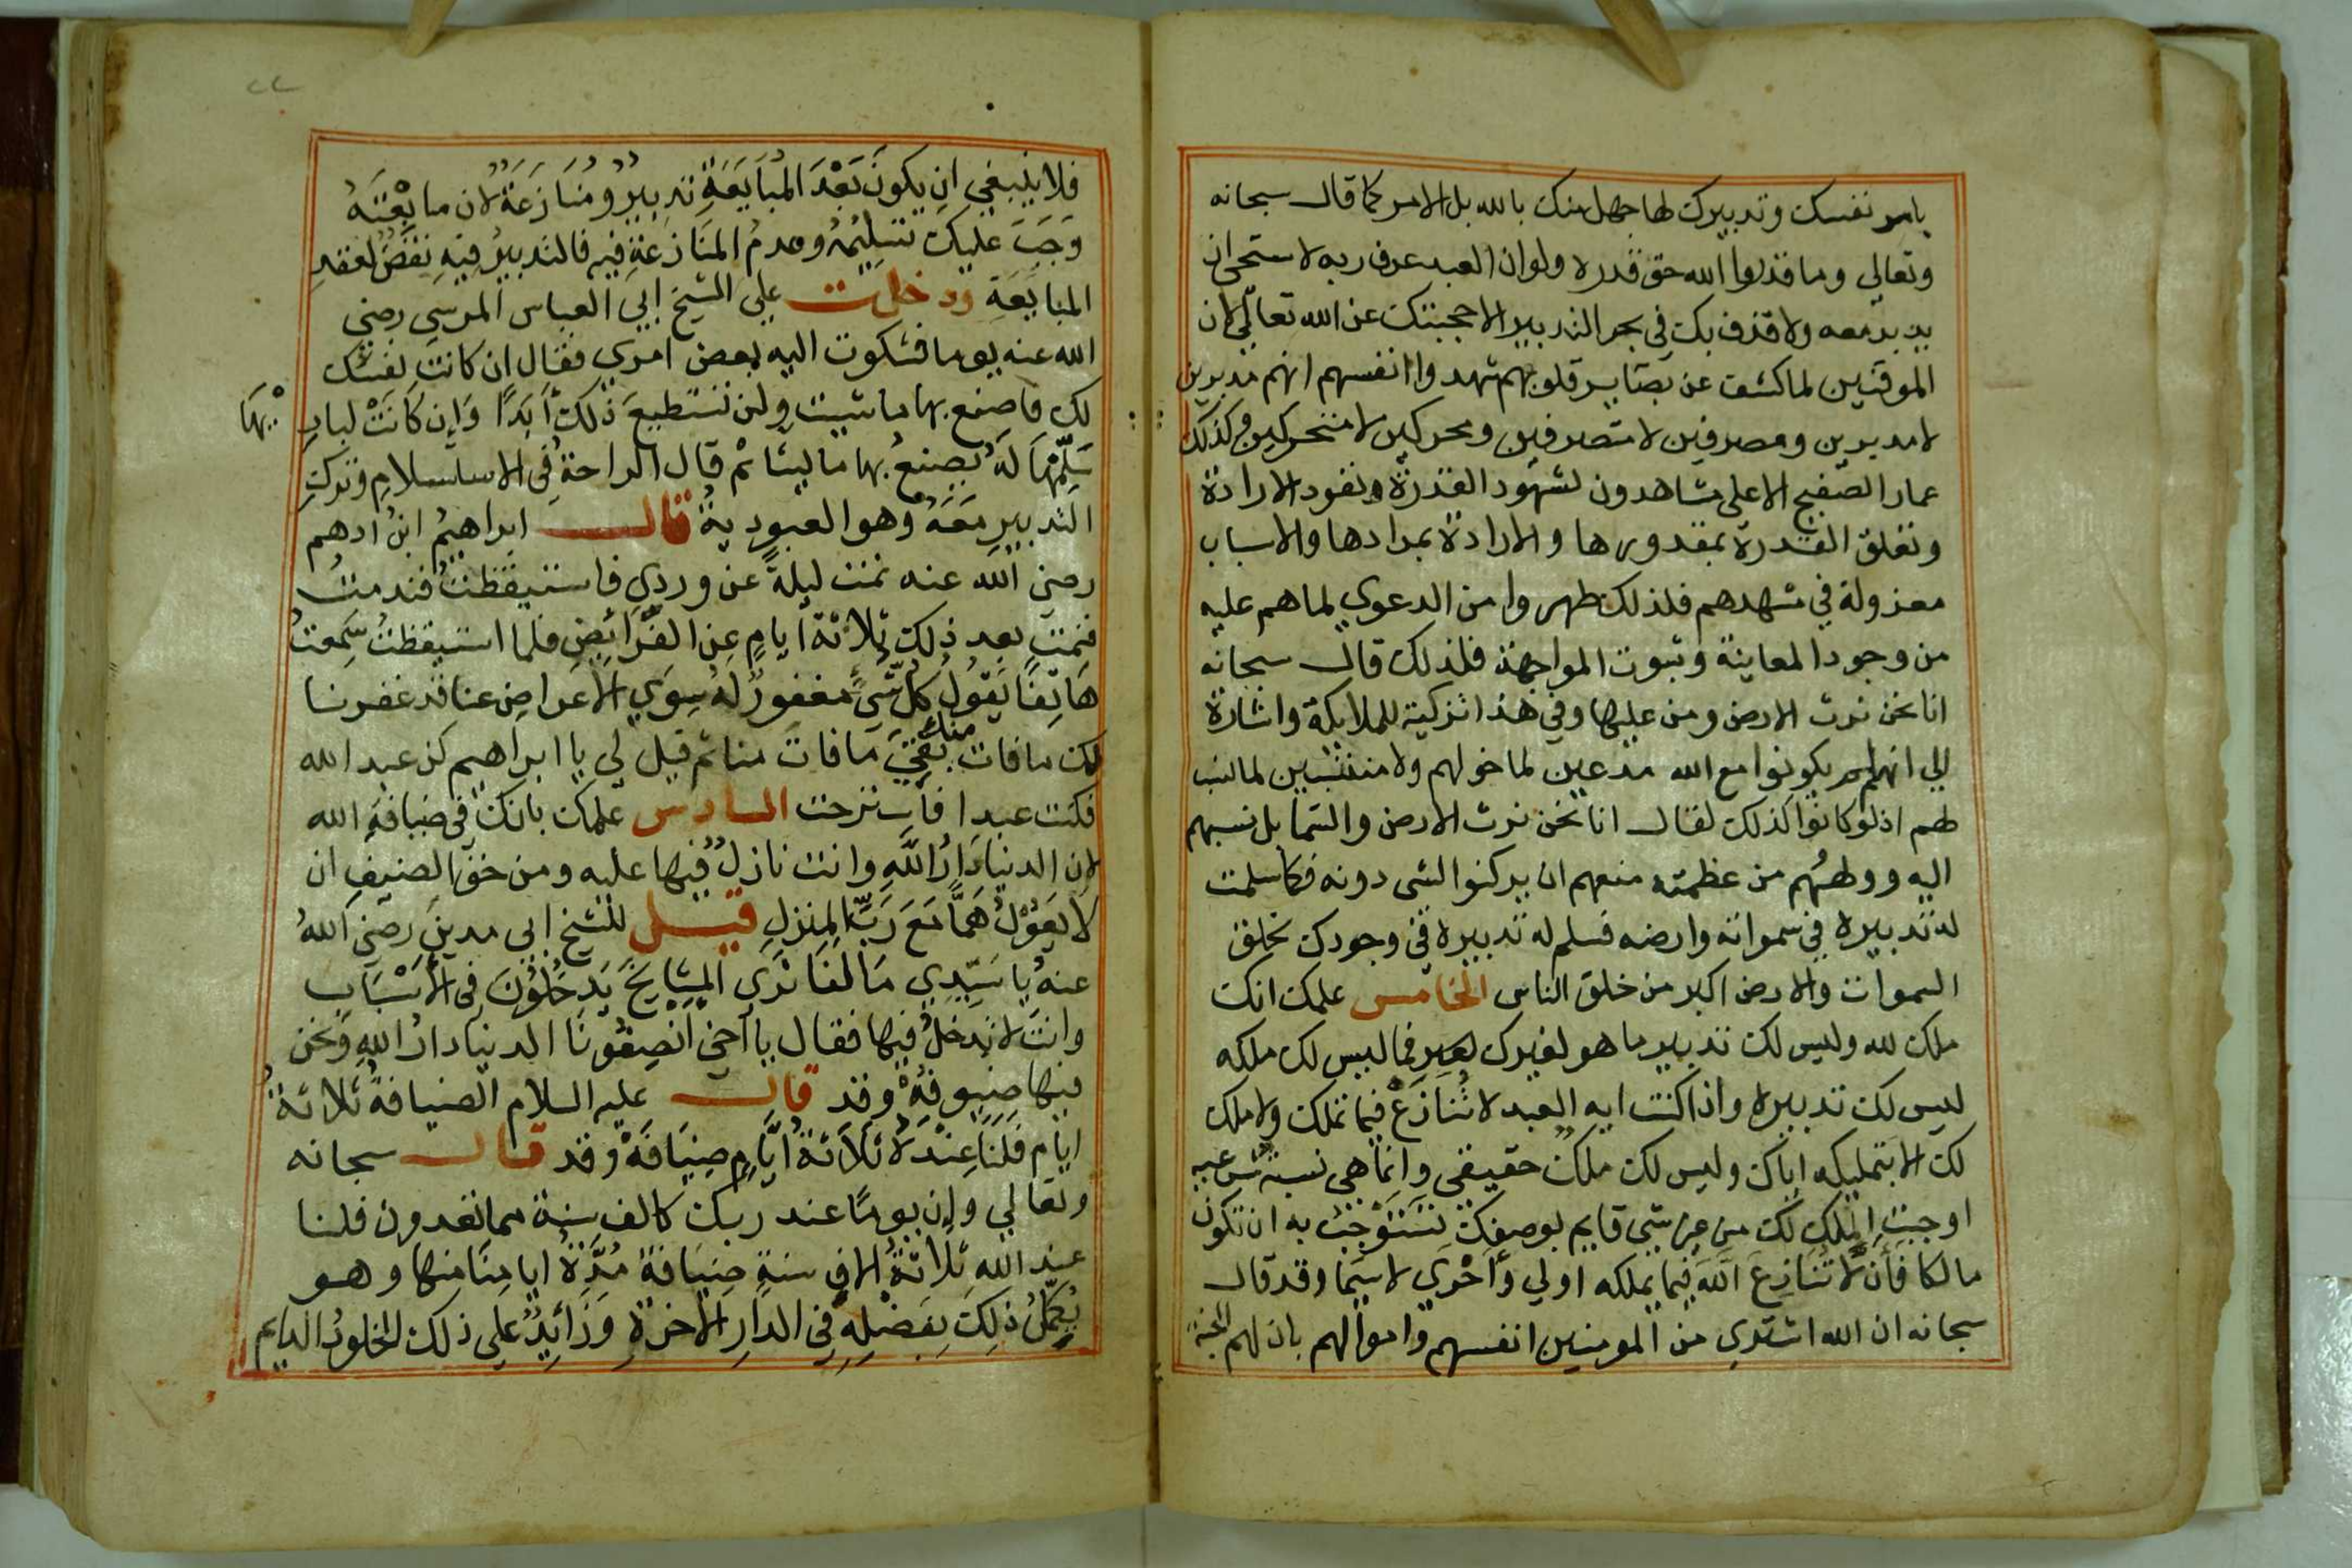 بامر نفسك وتدبيرك لها جهل منك بالله بل الامر كما قال سبحانه
وتعالي وما قدروا الله حق قدره ولو ان العبد عرف ربه لاستحى ان
يدبر معه ولا قذف بك في بحر التدبير الا حجبتك عن الله تعالي لان
الموقنين لما كشف عن بصاير قلوبهم شهدوا انفسهم انهم مدبرين
لا مدبرين ومصرفين لا متصرفين ومحركين لا متحركين وكذلك
عمار الصفيح الاعلى مشاهدون لشهود القدرة ونفود الارادة
وتعلق القدرة بمقدورها والارادة بمرادها والاسباب
معزولة في مشهدهم فلذلك طهروا من الدعوي لما هم عليه
من وجود المعاينة وثبوت المواجهة فلذلك قال سبحانه
انا نحن نرث الارض ومن عليها وفي هذا تزكية للملايكة واشارة
الي انهم لم يكونوا مع الله مدعين لما خولهم ولا منتسبين لما نسب
لهم اذ لو كانوا كذلك لقال انا نحن نرث الارض والسما بل نسبهم
اليه وولههم من عظمته منعهم ان يركنوا لشي دونه فكما سلمت
له تدبيره في سمواته وارضه فسلم له تدبيره في وجودك لخلق
السموات والارض اكبر من خلق الناس الخامس علمك انك
ملك لله وليس لك تدبير ما هو لغيرك لغير فما ليس لك ملكه
ليس لك تدبيره واذا كنت ايه العبد لا تُنَازَعْ فيما تملك ولا ملك
لك الا بتمليكه اياك وليس لك ملك حقيقي وانما هي نسبة شرعيه
اوجبت الملك لك من غير شي قايم بوصفك تستوجب به ان تكون
مالكا فَأَن لا تُنَازِعَ اللَّهَ فيما يملكه اولي وأَحْرَي لا سيما وقد قال
سبحانه ان الله اشتري من المومنين انفسهم واموالهم بان لهم الجنة
فلا ينبغي ان يكونَ بَعْدَ المُبَايَعَةِ تدبيرٌ ومُنَازَعَةٌ لان ما بِعْتَهُ
وَجَبَ عليك تسليمُهُ وعدمُ المنَازعَةِ فيه فالتدبيرُ فيه نقضٌ لعقد
المبايَعَةِ ودخلت علي الشيخ ابي العباس المرسي رضي
الله عنه يوما فشكوت اليه بعض امري فقال ان كانت نفسك
لك فاصنع بها ما شيت ولن تستطيعَ ذلك أَبَدًا وَإِن كَانَتْ لبار يِهَا
سَلِّمْهَا لَهُ يصنعُ بها ما يشا ثم قال الراحةُ في الاستسلام وترك
التدبير مَعَهُ وهو العبودية قال ابراهيمُ ابنُ ادهم
رضي الله عنه نمت ليلةً عن وردي فاستيقظتُ فندمتُ
فنمت بعد ذلك ثلاثة ايام عن الفرائض فلما استيقظتُ سَمِعتُ
هَاتِفًا يَقُولُ كلُّ شَيءٍ مغفورٌ لَهُ سِوَي الاعراض عنا قد غفرنا
لك ما فات منك بَقِيَ مَا فاتَ منا ثم قيل لي يا ابراهيم كن عبد الله
فكنت عبدا فاسترحت السادس علمك بانك في ضيافة الله
لان الدنيا دَارُ اللَّهِ وانت نازلٌ فيها عليه ومن حقِّ الضيف ان
لا يَعُوْلَ هَمًّا مَعَ رَبِّ المنزلِ قيل للشيخ ابي مدين رضي اللهُ
عنه يا سَيِّدِي مَا لَنَا نَرَي المشايخَ يَدخُلُوْنَ في الأَسْبَابِ
وانتَ لا تدخلُ فيها فقال يا أخي انصِفُونَا الدنيا دارُ اللهِ ونحن
فيها ضيوفُهُ وقد قال عليه السلام الضيافةُ ثلاثةُ
ايام فَلَنَا عِنْدَهُ ثَلاَثَةُ ايَّامٍ ضِيَافَةً وقد قال سبحانه
وتعالي وإن يومًا عند ربك كالف سنة مما تعدون فلنا
عند الله ثلاثةُ الافِ سنةٍ ضيَافةً مُدَّةُ ايامِنَا منها وهو
يُكَمِّلُ ذلك بِفَضْلِهِ في الدارِ الاخرةِ وَزَائِدٌ علي ذلك الخلودُ الدايم